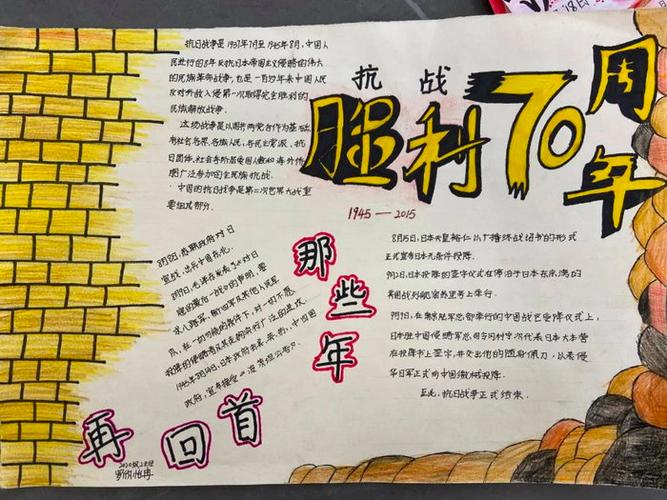 抗日战争是1937年7月至1945年8月,中国人
民进行的8年反抗日本帝国主义侵略的伟大
的民族革命战争,也是一百多年来中国人民
反对外敌入侵第一次取得完全胜利的
民族解放战争。
这场战争是以国共两党合作为基础,
有社会各界、各族人民、各民主党派、抗
日团体、社会各阶层爱国人数和海外侨
胞广泛参加的全民族抗战。
中国的抗日战争是第二次世界大战重
要组成部分。
抗 战
胜利70周年
1945—2015
8月8日,苏联政府对日
宣战,出兵中国东北。
8月9日,毛泽东发表了《对日
寇的最后一战》的声明,要
求八路军、新四军及其他人民军
队,在一切可能的条件下,对一切不愿
投降的侵略者及其走狗实行广泛的进攻。
1945年8月14日,日本政府照会美、英、苏、中四国
政府,宣布接受《波茨坦公告》。
那些年
8月15日,日本天皇裕仁以广播终战诏书的形式
正式宣布日本无条件投降。
9月2日,日本投降的签字仪式在停泊于日本东京湾的
美国战列舰密苏里号上举行。
9月9日,在南京陆军总部举行的中国战区受降仪式上,
日本驻中国侵略军总司令冈村宁次代表日本大本营
在投降书上签字,并交出他的随身佩刀,以表侵
华日军正式向中国缴械投降。
至此,抗日战争正式结束。
再回首